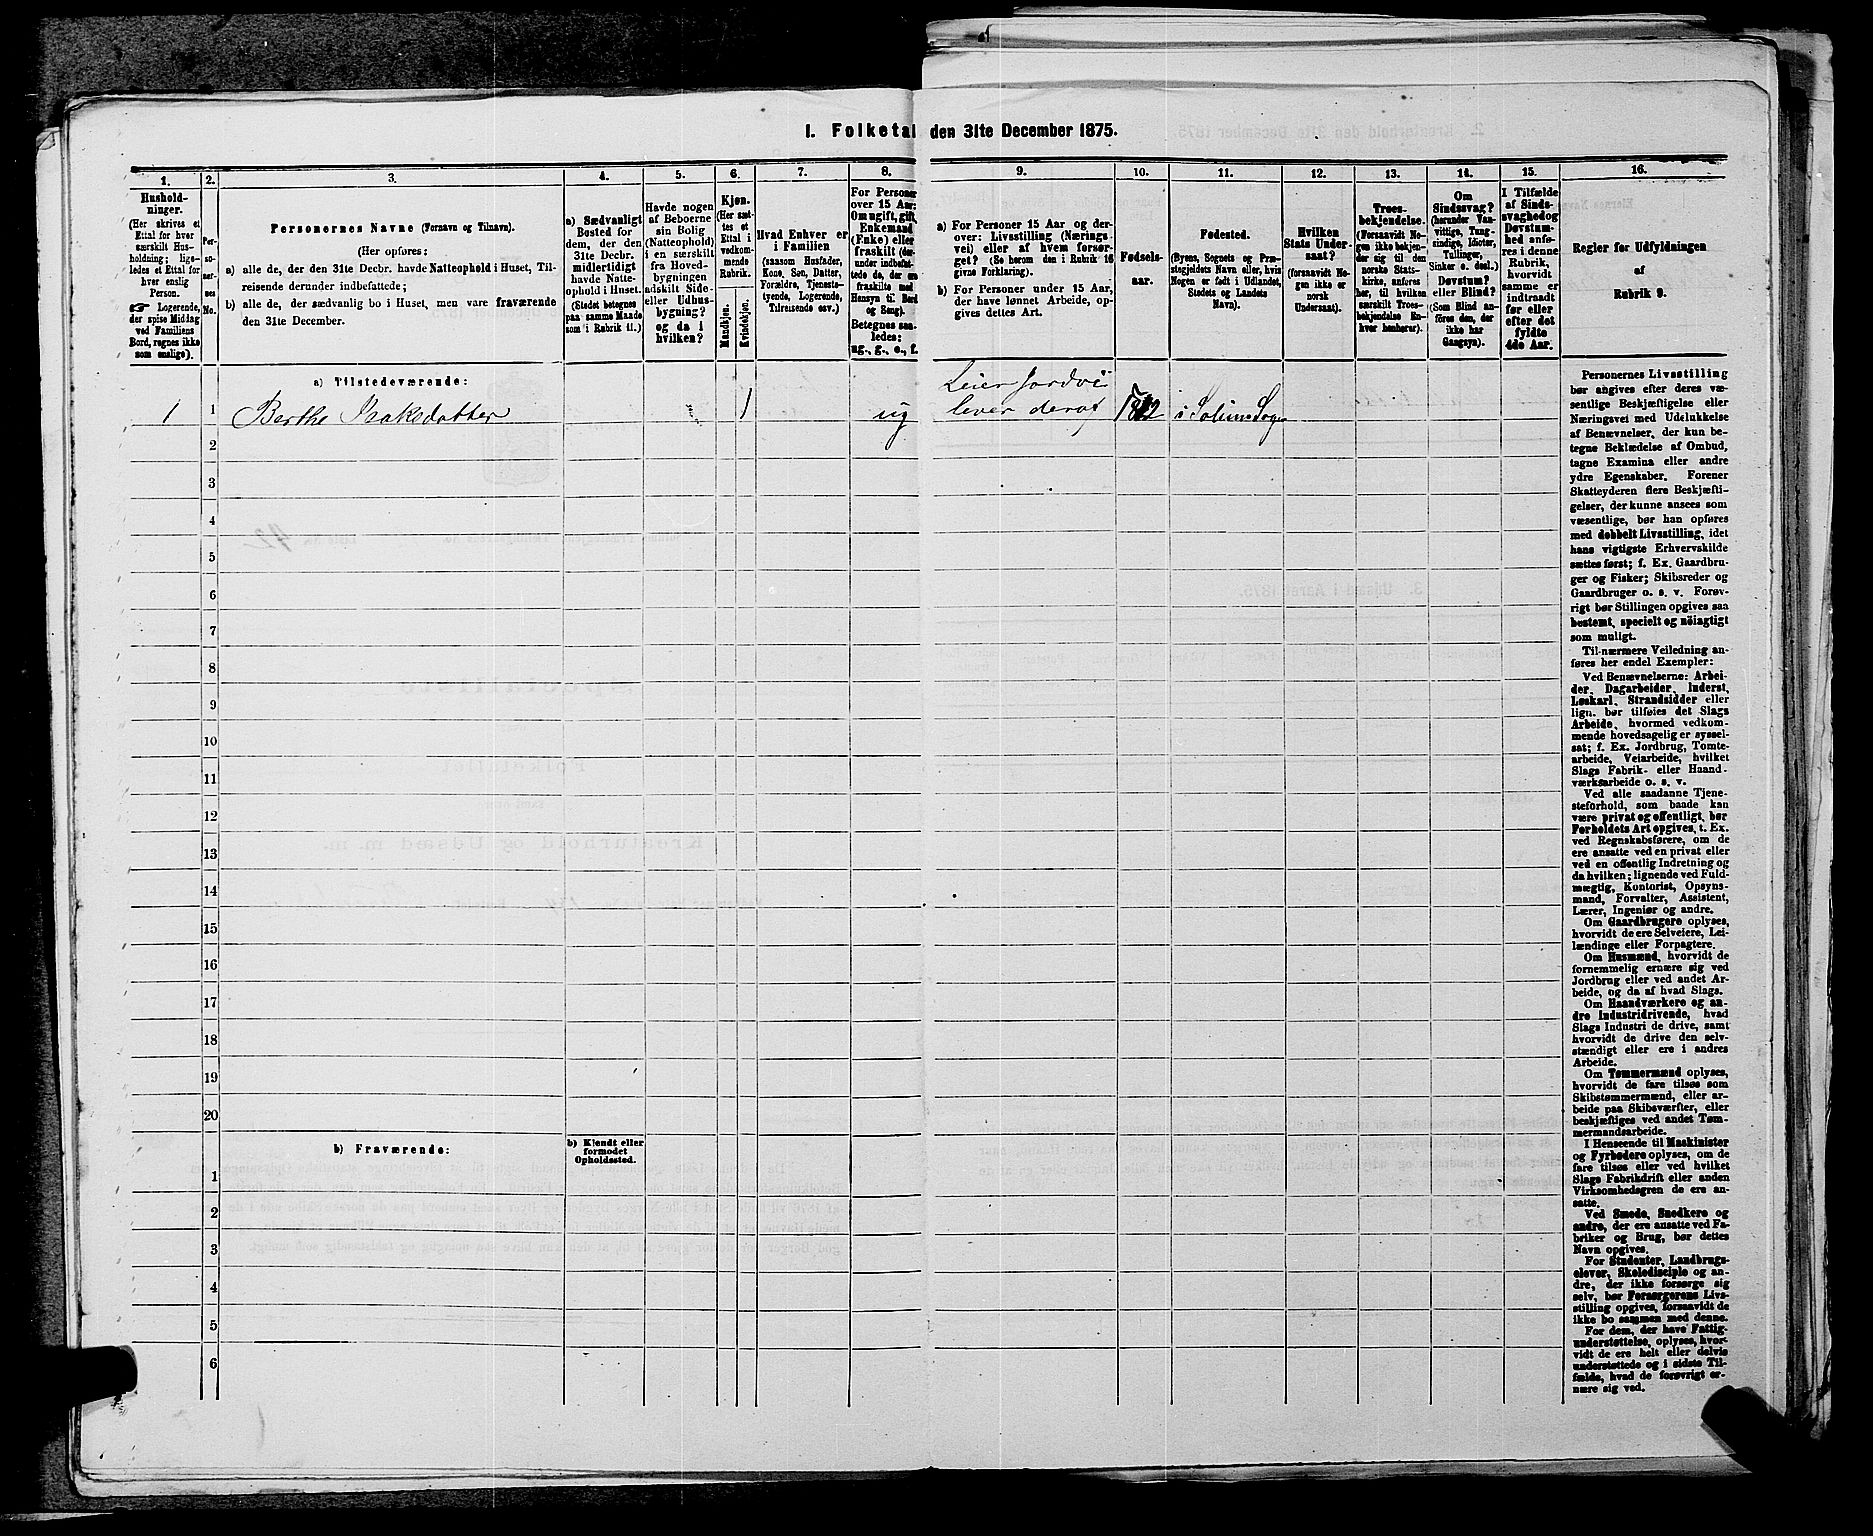 1. Folketal den 31te December 1875.
1.
Hushold-
ninger.
(Her skrives et
Ettal for hver
særskilt Hus-
holdning; lige-
ledes et Ettal for
hver enslig
Person.
☞ Logerende,
der spise Middag
ved Familiens
Bord, regnes ikke
som enslige).
2.
Per-
so-
ner-
nes
No.
3.
Personernes Navne (Fornavn og Tilnavn).
(Her opføres:
a) alle de, der den 31te Decbr. havde Natteophold i Huset, Til-
reisende derunder indbefattede;
b) alle de, der sædvanlig bo i Huset, men vare fraværende
den 31te December.
4.
a) Sædvanligt
Bosted for
dem, der den
31te Decbr.
midlertidigt
havde Natte-
ophold i Huset.
(Stedet betegnes
paa samme Maade
som i Rubrik 11.)
5.
Havde nogen
af Beboerne
sin Bolig
(Natteophold)
i en særskilt
fra Hoved-
bygningen
adskilt Side-
eller Udhus-
bygning?
og da i
hvilken?
6.
Kjøn.
(Her sæt-
tes et
Ettal i
vedkom-
mende
Rubrik.
Mandkjøn.
Kvindekjøn.
7.
Hvad Enhver er
i Familien
(saasom Husfader,
Kone, Søn, Datter,
Forældre, Tjeneste-
tyende, Logerende,
Tilreisende osv.)
8.
For Personer
over 15 Aar:
Om ugift, gift,
Enkemand
(Enke) eller
fraskilt (der-
under indbefat-
tede de, der ere
fraskilte med
Hensyn til Bord
og Seng).
Betegnes saa-
ledes:
ug., g., e., f.
9.
a) For Personer 15 Aar og der-
over: Livsstilling (Nærings-
vei) eller af hvem forsør-
get? (Se herom den i Rubrik 16
givne Forklaring).
b) For Personer under 15 Aar,
der have lønnet Arbeide, op-
gives dettes Art.
10.
Fødsels-
aar.
11.
Fødested.
(Byens, Sognets og Præ-
stegjeldets Navn eller, hvis
Nogen er født i Udlandet,
Stedets og Landets
Navn).
12.
Hvilken
Stats Under-
saat?
(forsaavidt No-
gen ikke er
norsk
Undersaat).
13.
Troes-
bekjendelse.
(Forsaavidt No-
gen ikke bekjen-
der sig til den
norske Stats-
kirke, anføres
her, til hvilken
særskilt Troes-
bekjendelse En-
hver henhører).
14.
Om
Sindssvag?
(herunder Van-
vittige, Tung-
sindige, Idioter,
Tullinger,
Sinker o. desl.)
Døvstum?
eller Blind?
(Som Blind an-
føres den, der
ikke har
Gangsyn).
15.
I Tilfælde
af Sinds-
svaghed og
Døvstum-
hed anfø-
res i denne
Rubrik,
hvorvidt
samme er
indtraadt
før eller
efter det
fyldte
4de Aar.
16.
Regler for Udfyldningen
af
Rubrik 9.
a) Tilstedeværende:
1 1 Berthe Isaksdatter 1 ug Leier Jord &
lever deraf 1812 i Solum Sogn
2
3
4
5
6
7
8
9
10
11
12
13
14
15
16
17
18
19
20
b) Fraværende:
b) Kjendt eller
formodet
Opholdssted.
1
2
3
4
5
6
Personernes Livsstilling
bør angives efter deres væ-
sentlige Beskjæftigelse eller
Næringsvei med Udelukkelse
af Benævnelser, der kun be-
tegne Beklædelse af Ombud,
tagne Examina eller andre
ydre Egenskaber. Forener
Skatteyderen flere Beskjæfti-
gelser, der kunne ansees som
væsentlige, bør han opføres
med dobbelt Livsstilling, idet
hans vigtigste Erhvervskilde
sættes først; f. Ex. Gaardbru-
ger og Fisker; Skibsreder og
Gaardbruger o. s. v. Forøv-
rigt bør Stillingen opgives saa
bestemt, specielt og nöiagtigt
som muligt.
Til nærmere Veiledning an-
føres her endel Exempler:
Ved Benævnelserne: Arbei-
der, Dagarbeider, Inderst,
Løskarl, Strandsidder eller
lign. bør tilføies det Slags
Arbeide, hvormed vedkom-
mende hovedsagelig er syssel-
sat; f. Ex. Jordbrug, Tomte-
arbeide, Veiarbeide, hvilket
Slags Fabrik- eller Haand-
værksarbeide o. s. v.
Ved alle saadanne Tjene-
steforhold, som baade kan
være privat og offentligt, bør
Forholdets Art opgives, t. Ex.
ved Regnskabsførere, om de
ere ansatte ved en privat eller
ved en offentlig Indretning og
da hvilken; lignende ved Fuld-
mægtig, Kontorist, Opsyns-
mand, Forvalter, Assistent,
Lærer, Ingeniør og andre.
Om Gaardbrugere oplyses,
hvorvidt de ere Selveiere, Lei-
lændinge eller Forpagtere.
Om Husmænd, hvorvidt de
fornemmelig ernære sig ved
Jordbrug eller ved andet Ar-
beide, og da af hvad Slags.
Om Haandværkere og an-
dre Industridrivende, hvad
Slags Industri de drive, samt
hvorvidt de drive den selv-
stændigt eller ere i andres
Arbeide.
Om Tømmermænd oplyses,
hvorvidt de fare tilsøs som
Skibstømmermænd, eller ar-
beide paa Skibsværfter, eller
beskjæftiges ved andet Tøm-
mermandsarbeide.
I Henseende til Maskinister
og Fyrbødere oplyses, om de
fare tilsøs eller ved hvilket
Slags Fabrikdrift eller anden
Virksomhedsgren de ere an-
satte.
Ved Smede, Snedkere og
andre, der ere ansatte ved Fa-
briker og Brug, bør dettes
Navn opgives.
For Studenter, Landbrugs-
elever, Skoledisciple og an-
dre, der ikke forsørge sig
selv, bør Forsørgerens Livs-
stilling opgives, forsaavidt de
ikke bo sammen med denne.
For dem, der have Fattig-
understøttelse, oplyses, hvor-
vidt de ere helt eller delvis
understøttede og i sidste Til-
fælde, hvad de forøvrigt er-
nære sig ved.